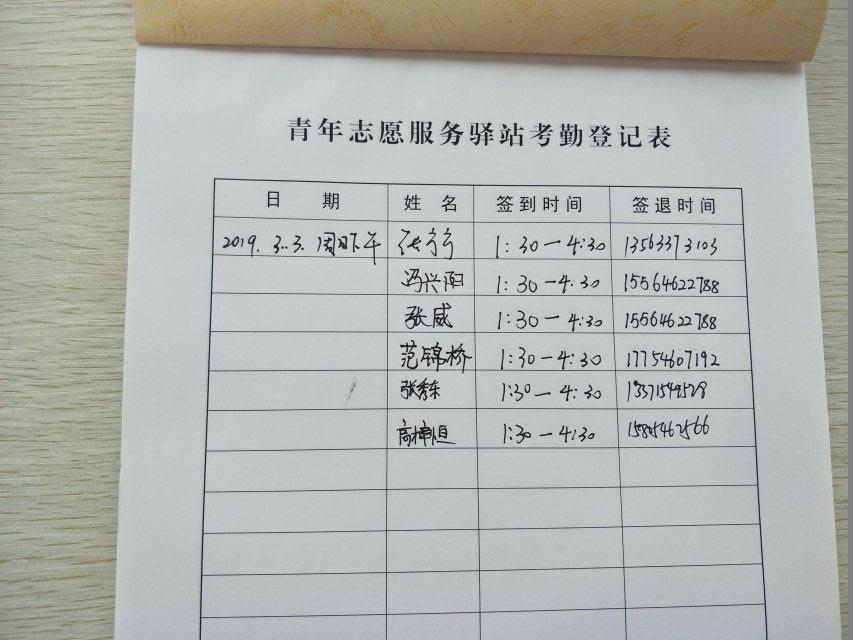 青年志愿服务驿站考勤登记表
日 期 姓 名 签到时间 签退时间
2019.3.3.周日下午 张行行 1:30-4:30 13563373103
冯兴阳 1:30-4:30 15564622788
张威 1:30-4:30 15564622788
范锦桥 1:30-4:30 17754607192
张秀东 1:30-4:30 13371549528
高樟恒 1:30-4:30 15805462566